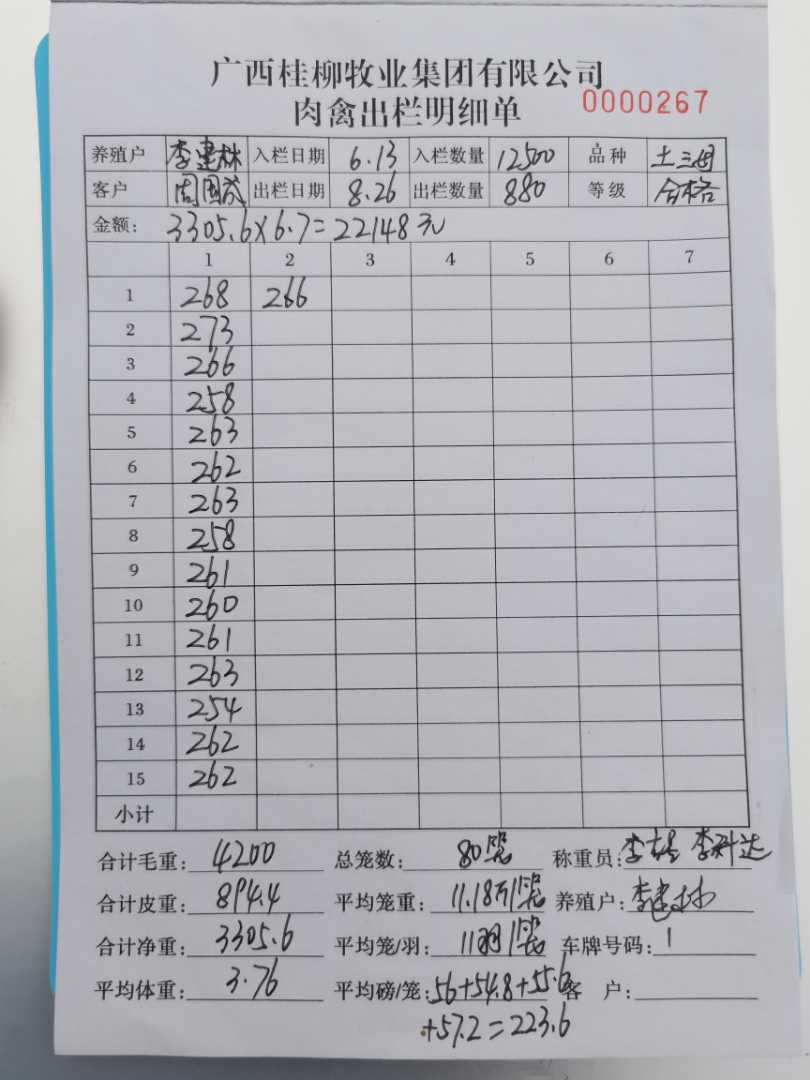 广西桂柳牧业集团有限公司
肉禽出栏明细单 0000267
养殖户 李建林 入栏日期 6.13 入栏数量 12500 品种 土三母
客户 出栏日期 8.26 出栏数量 880 等级 合格
金额: 3305.6×6.7=22148元
1 2 3 4 5 6 7
1 268 266
2 273
3 266
4 258
5 263
6 262
7 263
8 258
9 261
10 260
11 261
12 263
13 254
14 262
15 262
小计
合计毛重: 4200 总笼数: 80笼 称重员:
合计皮重: 894.4 平均笼重: 11.18斤/笼 养殖户: 李建林
合计净重: 3305.6 平均笼/羽: 11羽/笼 车牌号码: 1
平均体重: 3.76 平均磅/笼: 56+54.8+55.6 客 户:
+57.2=223.6